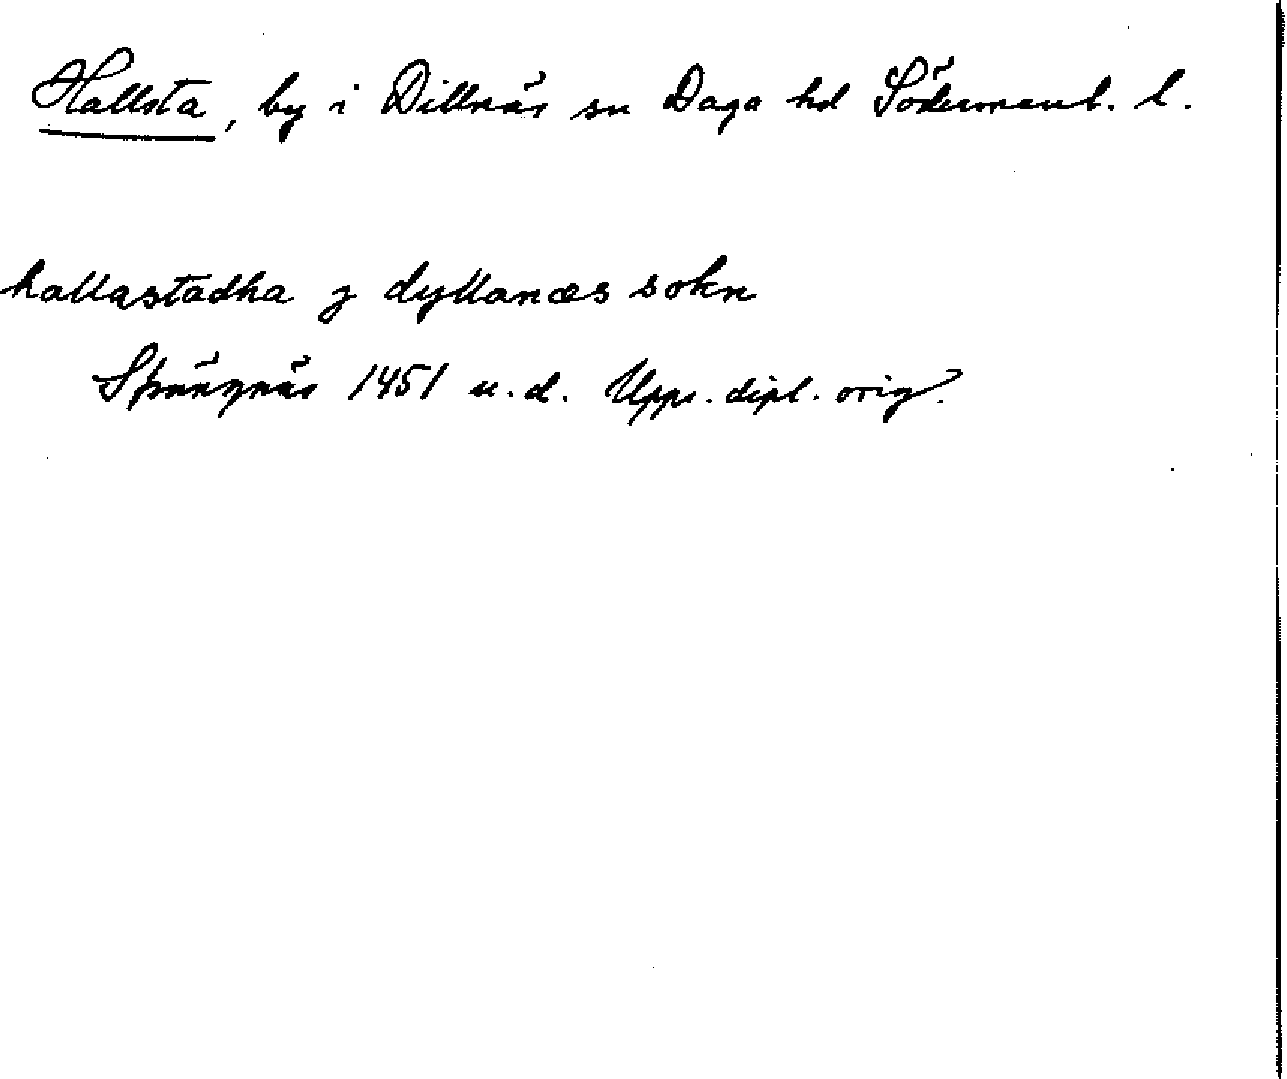 Hallsta, by i Dillnäs sn Daga hd Södermanl. l.
hallastadha j dyllanæs sokn
Strängnäs 1451 u.d. Upps. dipl. orig.